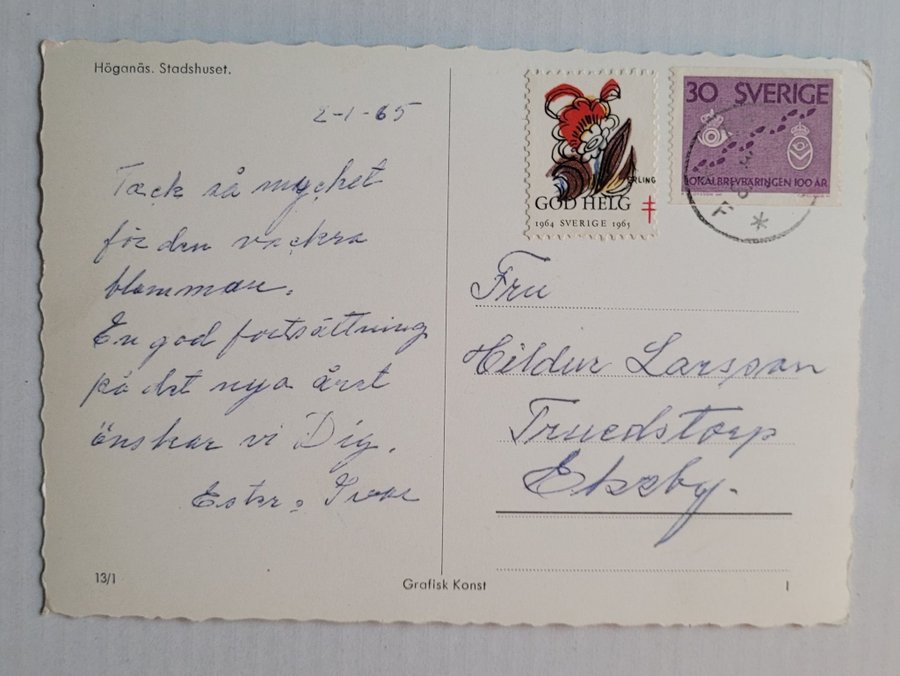 Höganäs. Stadshuset.
2-1-65
Tack så mycket
för den vackra
blomman.
En god fortsättning
på det nya året
önskar vi Dig.
Ester o Ivar
13/1
Grafisk Konst
1
ERLING
GOD HELG
1964 SVERIGE 1965
30 SVERIGE
LOKALBREVBÄRINGEN 100 ÅR
Fru
Hildur Larsson
Truedstorp
Ekeby.